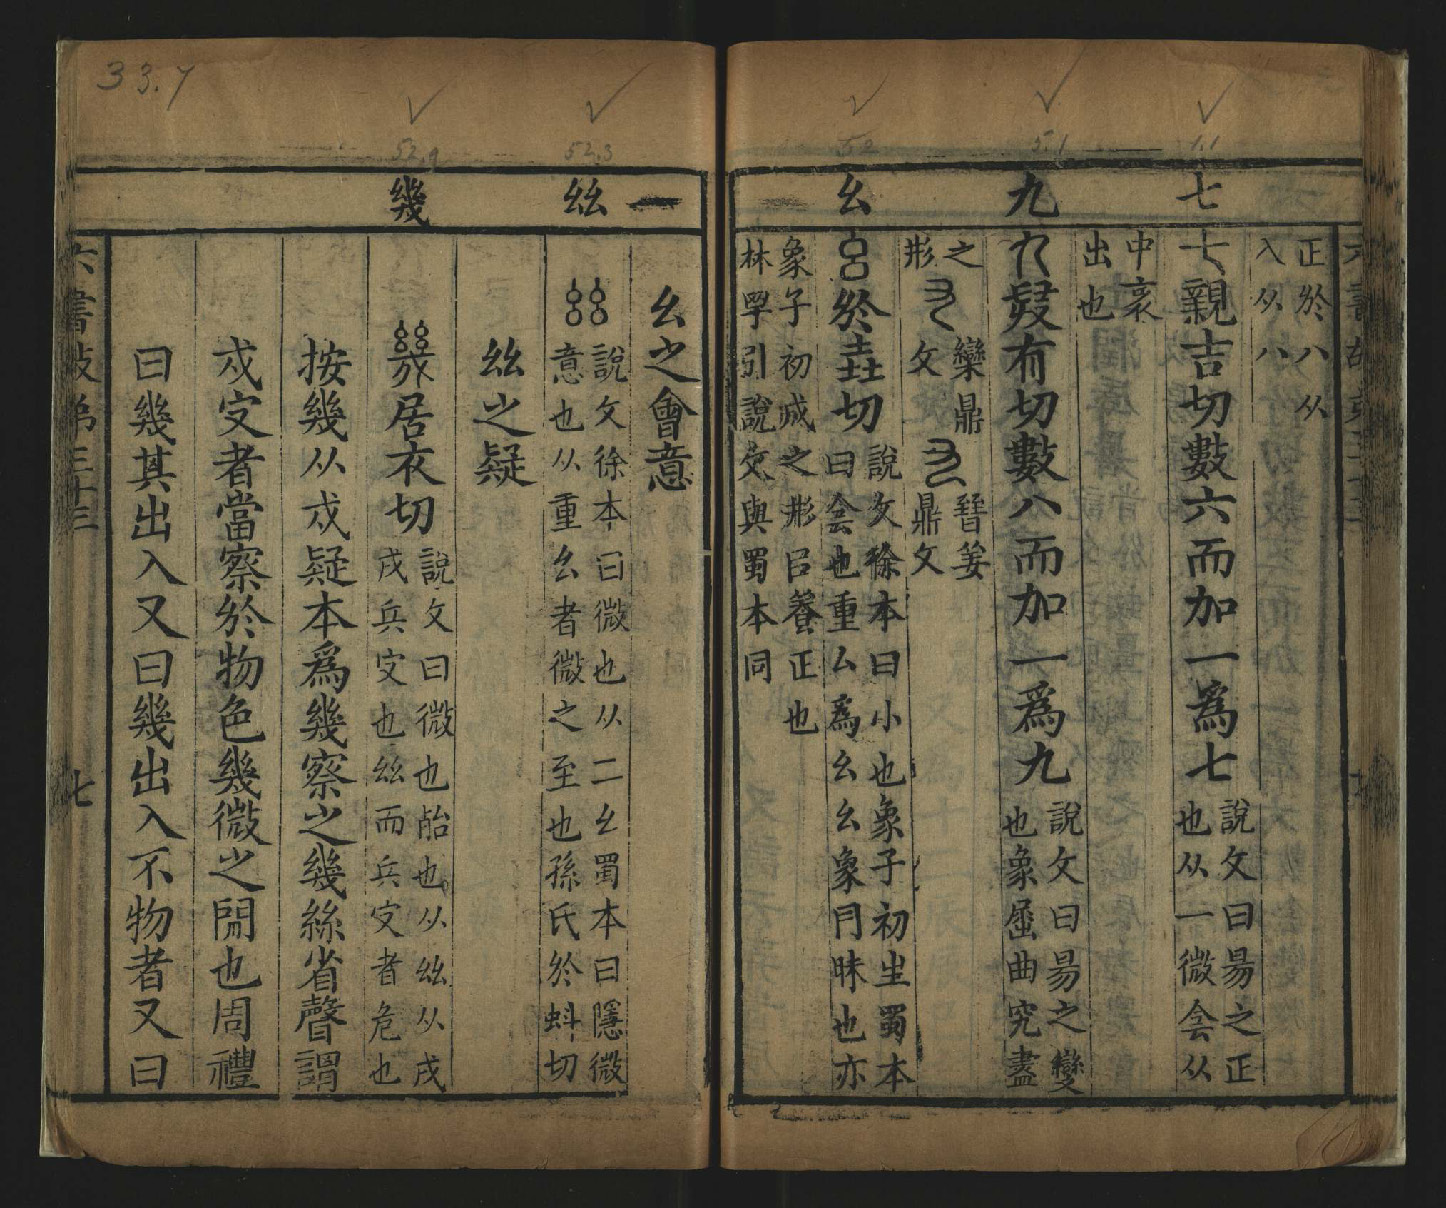 33.7
七
九
幺
正於八从
入从八
七親吉切數六而加一爲七
說文曰昜之正
也从一微侌从
中衺
出也
九有切數八而加一爲九
說文曰昜之變
也象屈曲究盡
之
形
欒鼎
文
晉姜
鼎文
於垚切
說文徐本曰小也象子初生蜀本
曰侌也重厶爲幺幺象冃昧也亦
象子初成之形㠯養正也
林罕引說文與蜀本同
一
𢆶
幾
幺之會意
說文徐本曰微也从二幺蜀本曰隱微
意也从重幺者微之至也孫氏於蚪切
𢆶之疑
居衣切
說文曰微也殆也从𢆶从戍
戍兵守也𢆶而兵守者危也
按幾从戍疑本爲幾察之幾絲省聲謂
戍守者當察於物色幾微之閒也周禮
曰幾其出入又曰幾出入不物者又曰
六書故弟三十三
七